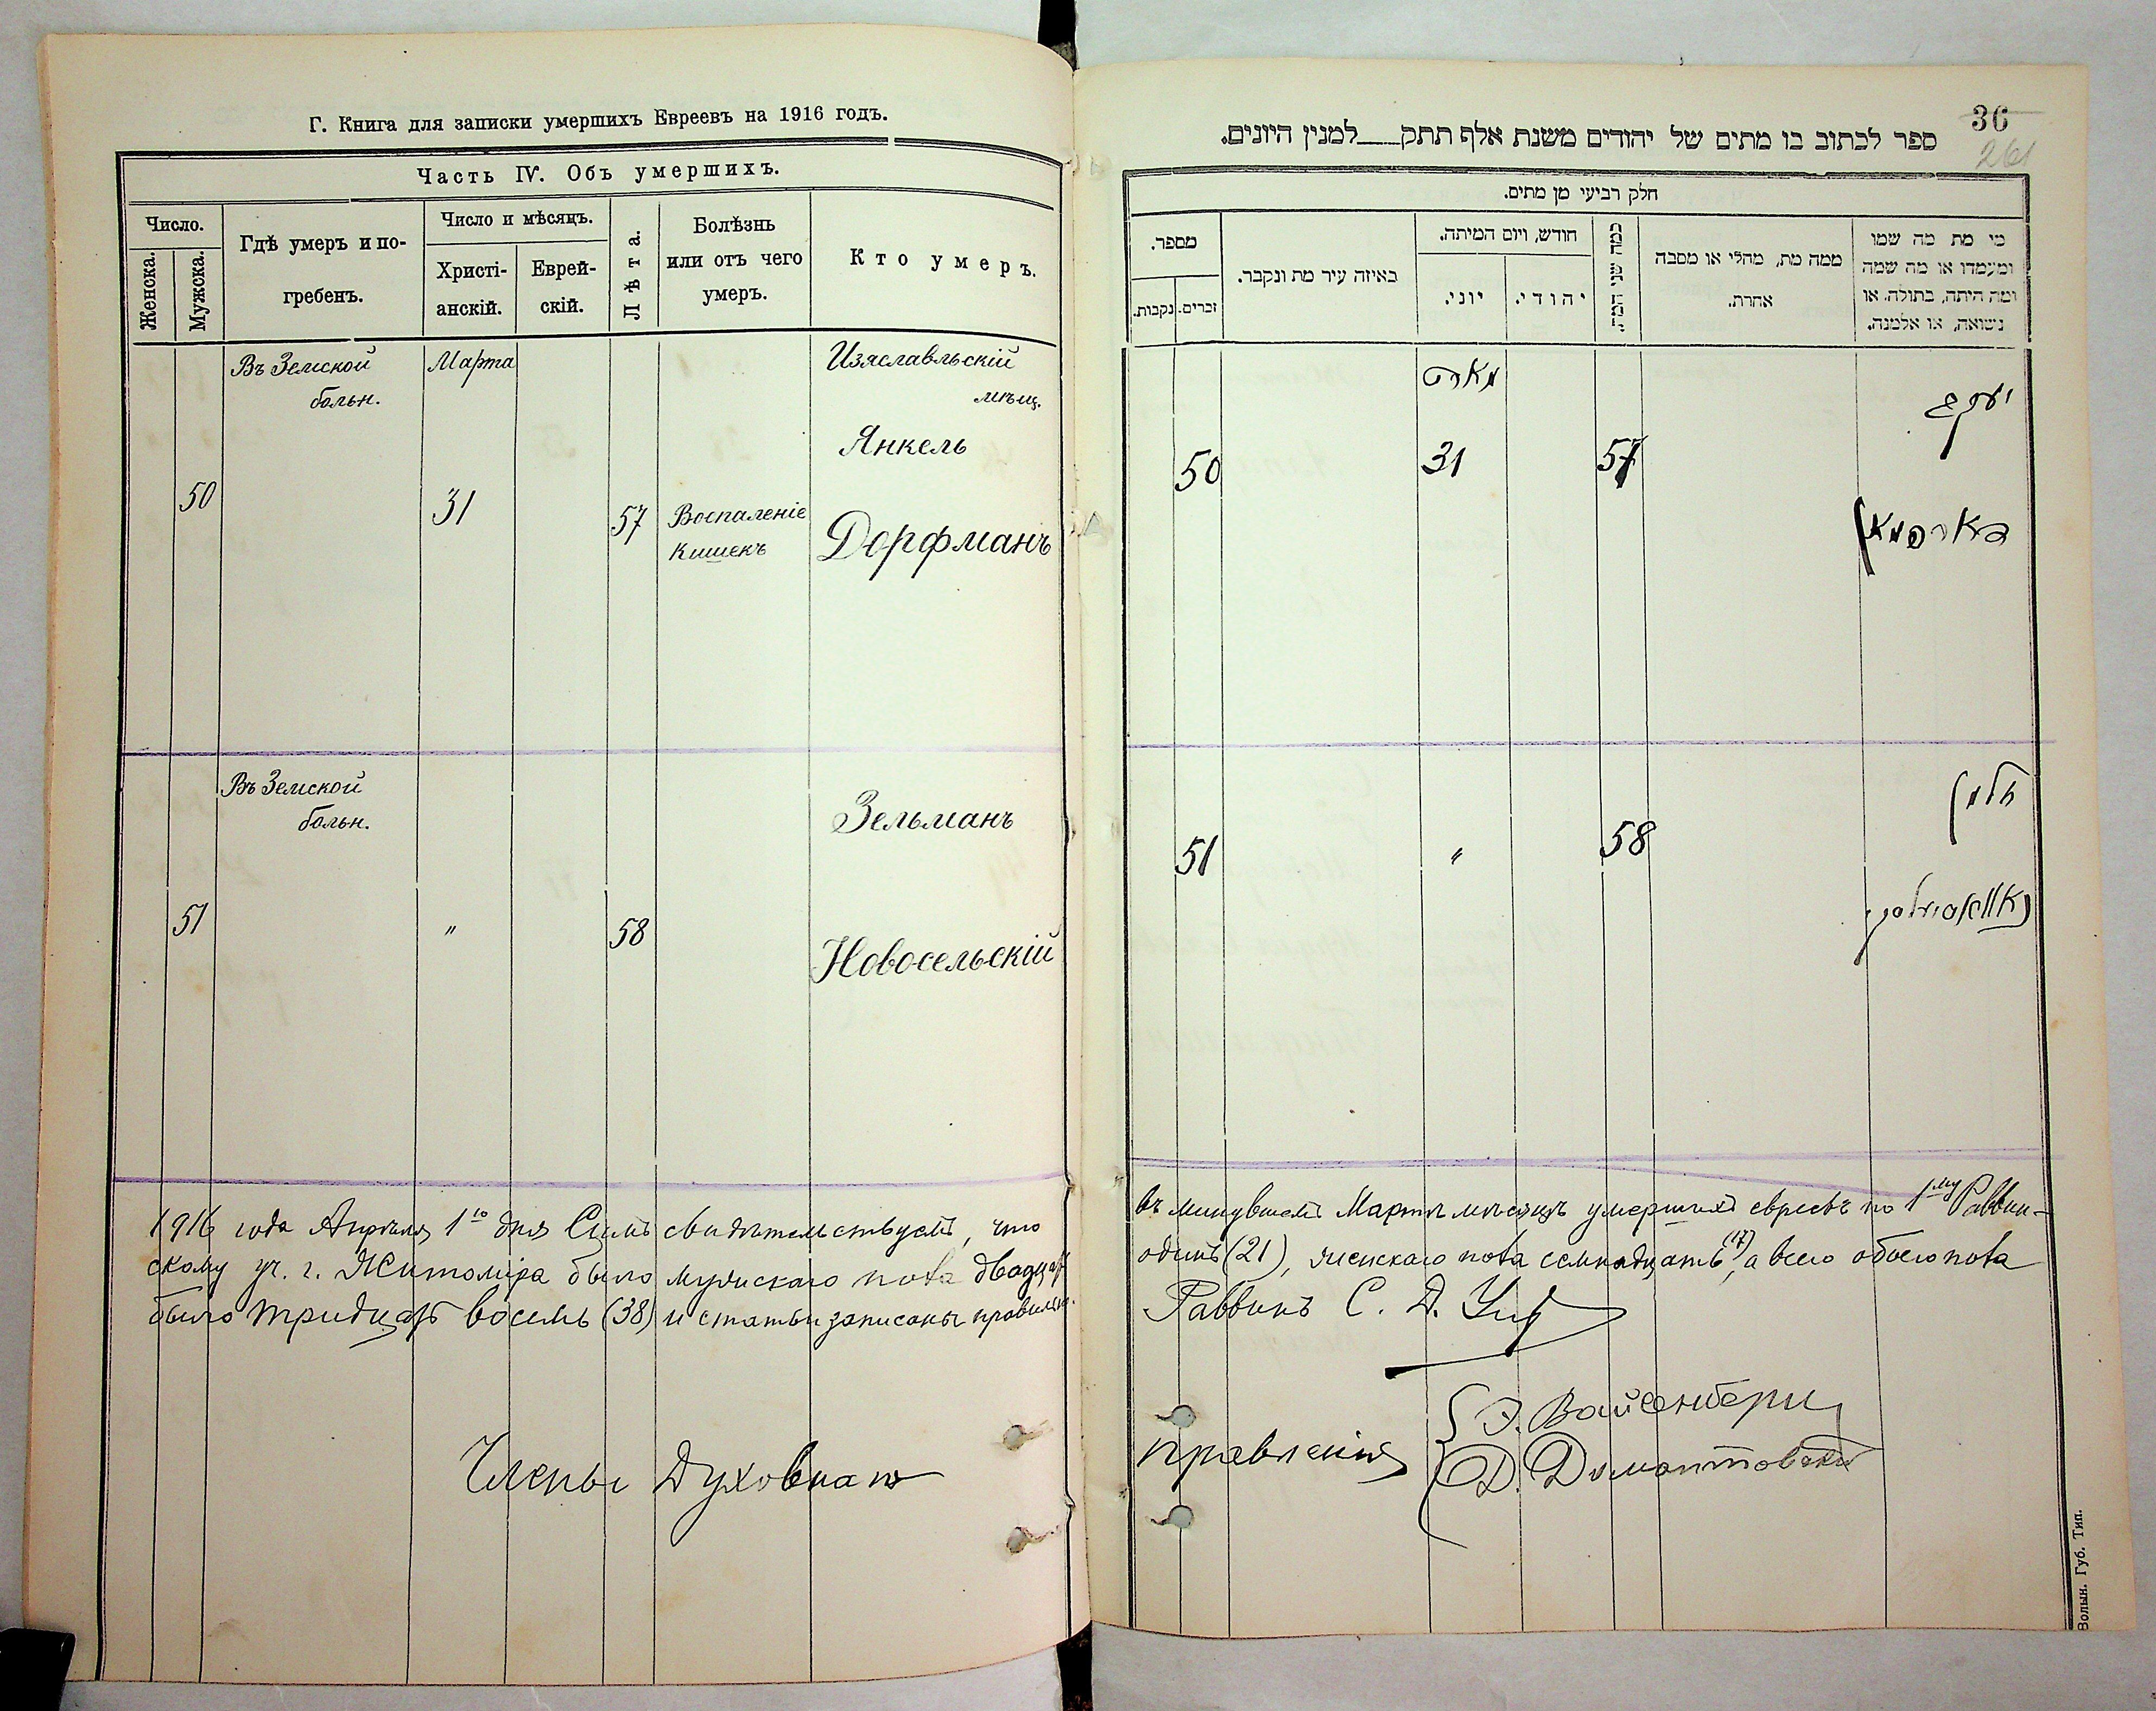 Г. Книга для записки умершихъ Евреевъ на 1916 годъ.
Часть IV. Объ умершихъ.
Число.
Женска.
Мужска.
Гдѣ умеръ и по-
гребенъ.
Число и мѣсяцъ.
Христі-
анскій.
Еврей-
скій.
Лѣта.
Болѣзнь
или отъ чего
умеръ.
Кто умеръ.
Въ Земской
больн.
Марта
Изяславльскій
мѣщ.
Янкель
50
31
57
Воспаленіе
кишекъ
Дорфманъ
Въ Земской
больн.
Зельманъ
51
"
58
Новосельскій
1916 года Апрѣля 1го дня Симъ свидѣтельствуемъ, что
скому уч. г. Житоміра было мужскаго пола двадцать
было тридцать восемь (38) и статьи записаны правильн.
Члены Духовнаго
36
261
ספר לכתוב בו מתים של יהודים משנת אלף תתק___למנין היונים.
חלק רביעי מן מתים.
מספר.
נקבות.
זכרים.
באיזה עיר מת ונקבר.
חודש, ויום המיתה.
יוני.
יהודי.
כמה שני המת.
ממה מת, מחלי או מסבה
אחרת.
מי מת מה שמו
ומעמדו או מה שמה
ומה היתה, בתולה, או
נשואה, או אלמנה.
מארט
יעקב
50
31
57
דארפמאן
זלמן
51
"
58
נאוואסילסקי
въ минувшемъ Мартѣ мѣсяцѣ умершихъ евреевъ по 1му Раввин-
одинъ (21), женскаго пола семнадцать (17), а всего обоего пола
Раввинъ С. Д.
правленія
Э. Вайсенбергъ
Д. Домонтовскій
Волын. Губ. Тип.